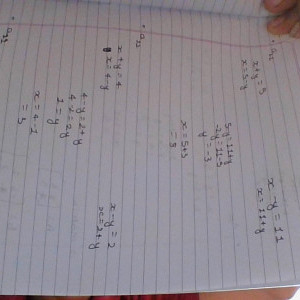 x+y = 5
x = 5-y
x - y = 11
x = 11+y
5-y = 11+y
-2y = 11-5
y = -3
x = 5+3
= 8
x + y = 4
x = 4-y
x - y = 2
x = 2+y
4-y = 2+y
4-2 = 2y
1 = y
x = 4-1
= 3